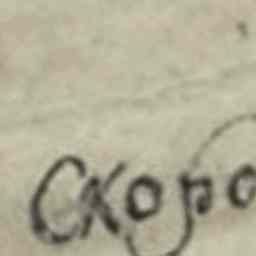 скоро